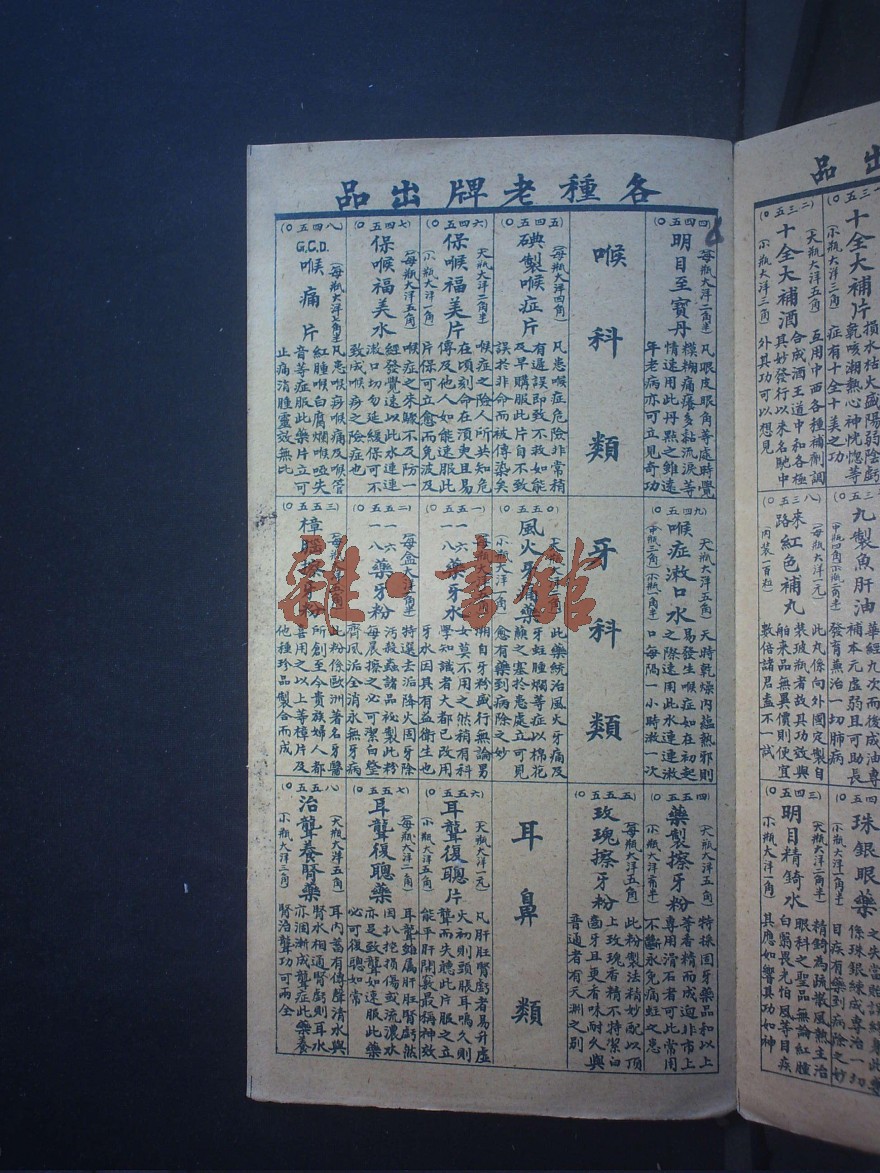 各種老牌出品
(〇五四四)
明目至寶丹
(每瓶大洋二角半)
凡眼皮眼角等處時覺
模糊痛癢多黏流淚等
情速用此丹點之雖遠
年老病亦可立見奇功
喉科類
(〇五四五)
碘製喉症片
(每瓶大洋四角)
凡患喉症危險非常稍
有遲誤即致不救如能
及早購服此片自不致
誤於非命而被傳染矣
(〇五四六)
保喉福美片
(大瓶大洋二角半)
(小瓶大洋一角)
喉症之險人所共知危
在頃刻命在須臾且易
傳及他人如能速服此
片保可立愈而免波及
(〇五四七)
保喉福美水
(每瓶大洋五角)
喉症之來驟不及防一
經發覺速以此水連連
漱口切勿延緩保可不
致成喉痧之險症也
(〇五四八)
G.C.D.
喉痛片
(每瓶大洋七角半)
凡患喉痧喉痛及喉管
紅腫喉白腐爛喉啞失
音等症服此藥片立可
止痛消腫靈效無比
(〇五四九)
喉症漱口水
(大瓶大洋五角)
(中瓶三角 小瓶一角半)
天時乾燥內蘊熱邪則
易發生喉症如在初起
之際速用此水連連漱
口每隔一小時漱一次
牙科類
(〇五五〇)
風火牙痛藥
(小瓶大洋一角)
此藥統治風火牙痛及
牙蛀腫爛等症以棉花
蘸之塞於患處立可見
愈有藥到病除之妙
(〇五五一)
一六八藥牙水
潮自牙粉盛行無論男
女莫不用之然稍有科
學知識者大都已改用
牙水因具有益衛生也
(〇五五二)
一六八藥牙粉
(每盒大洋二角半)
特選去垢降火固牙除
污殺蟲諸品祕製此粉
每晨擦之必可潔白整
齊風垢全消永無牙病
(〇五五三)
樟腦擦牙粉
此粉係歐洲著名牙醫
所創至今貴族婦人都
喜用之以上等樟片及
他種珍品製合而成
(〇五五四)
藥製擦牙粉
(大瓶大洋五角)
(小瓶大洋角半)
特採固牙藥品和以上
等香精而成迥非市上
專用滑石者可比常用
不斷永免痛蛀之患
(〇五五五)
玫瑰擦牙粉
(每瓶大洋五角)
此粉製法精妙配以頂
上玫瑰香精不特潔白
齒牙且更香味耐久與
普通者有天淵之別
耳鼻類
(〇五五六)
耳聾復聰片
(大瓶大洋一元)
(小瓶大洋五角)
凡肝旺腎虧者易升虛
火初則頭脹耳鳴久則
聾而失聽此片服之立
能平肝開竅最稱神效
(〇五五七)
耳聾復聰藥
(每瓶大洋二角)
耳聾雖屬肝旺腎虧然
因扒挖損傷或流濃水
亦是致聾如速服此藥
必可復聰如常
(〇五五八)
治聾養腎藥
(大瓶大洋五角)
(小瓶大洋三角)
耳內蓄有傳聲清水與
腎水相通腎虧則耳水
亦涸漸成聾症此藥養
腎治聾功可兩全
出品
十全大補片
損水枯火盛陽弱陰虧
乾咳潮熱心神恍惚等
症有十全十美之功
(〇五三二)
十全大補酒
(大瓶大洋五角)
(小瓶大洋三角)
五用中西各種補劑調
合成酒王道中和各極
其妙發行以來名馳中
外其功可以想見
九製魚肝油
華經九次而後成油專
補本元虛弱且可助長
發育兼治一切肺病
(〇五三八)
路來紅色補丸
(每瓶大洋一元)
(內裝一百粒)
此丸係向外國定製自
裝玻瓶者故其功效與
舶來品無異價則便宜
數倍諸君盍不一試
珠銀眼藥
係珠銀練成專治一切
目疾有藥到病除之妙
(〇五四三)
明目精錡水
(大瓶大洋二角半)
(小瓶大洋一角)
精錡為疏散風熱主治
眼科之聖品無論紅腫
白翳畏光怕風等目疾
其應如響其功如神
雜·書館